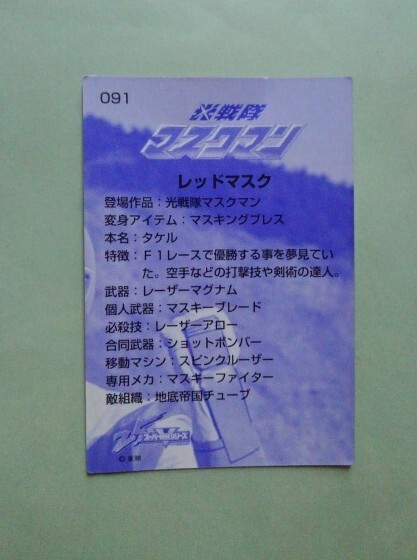 091
光戦隊
マスクマン
レッドマスク
登場作品：光戦隊マスクマン
変身アイテム：マスキングブレス
本名：タケル
特徴：Ｆ１レースで優勝する事を夢見てい
た。空手などの打撃技や剣術の達人。
武器：レーザーマグナム
個人武器：マスキーブレード
必殺技：レーザーアロー
合同武器：ショットボンバー
移動マシン：スピンクルーザー
専用メカ：マスキーファイター
敵組織：地底帝国チューブ
スーパー戦隊シリーズ
©東映